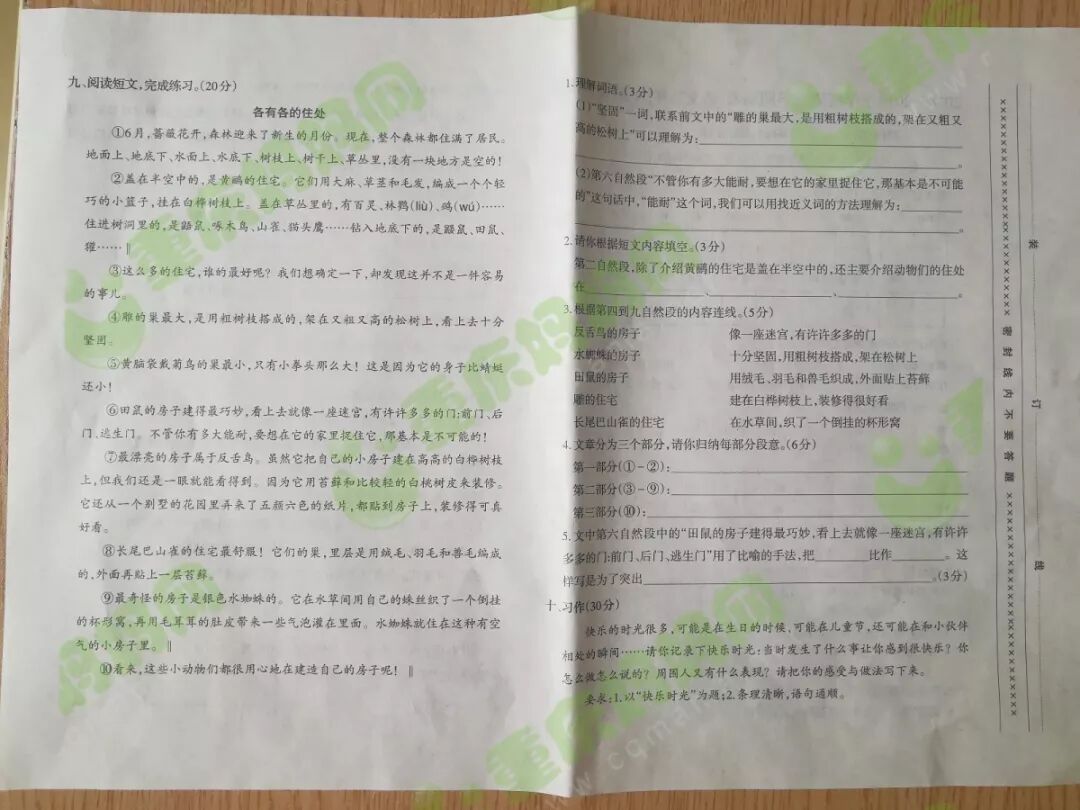 九、阅读短文,完成练习。(20分)
各有各的住处
①6月,蔷薇花开,森林迎来了新生的月份。现在,整个森林都住满了居民。
地面上、地底下、水面上、水底下、树枝上、树干上、草丛里,没有一块地方是空的!
②盖在半空中的,是黄鹂的住宅。它们用大麻、草茎和毛发,编成一个个轻
巧的小篮子,挂在白桦树枝上。盖在草丛里的,有百灵、林鹨(liù)、鹀(wú)……
住进树洞里的,是鼯鼠、啄木鸟、山雀、猫头鹰……钻入地底下的,是鼹鼠、田鼠、
獾……‖
③这么多的住宅,谁的最好呢?我们想确定一下,却发现这并不是一件容易
的事儿。
④雕的巢最大,是用粗树枝搭成的,架在又粗又高的松树上,看上去十分
坚固。
⑤黄脑袋戴菊鸟的巢最小,只有小拳头那么大!这是因为它的身子比蜻蜓
还小!
⑥田鼠的房子建得最巧妙,看上去就像一座迷宫,有许许多多的门:前门、后
门、逃生门。不管你有多大能耐,要想在它的家里捉住它,那基本是不可能的!
⑦最漂亮的房子属于反舌鸟。虽然它把自己的小房子建在高高的白桦树枝
上,但我们还是一眼就能看得到。因为它用苔藓和比较轻的白桃树皮来装修。
它还从一个别墅的花园里弄来了五颜六色的纸片,都贴到房子上,装修得可真
好看。
⑧长尾巴山雀的住宅最舒服!它们的巢,里层是用绒毛、羽毛和兽毛编成
的,外面再贴上一层苔藓。
⑨最奇怪的房子是银色水蜘蛛的。它在水草间用自己的蛛丝织了一个倒挂
的杯形窝,再用毛茸茸的肚皮带来一些气泡灌在里面。水蜘蛛就住在这种有空
气的小房子里。‖
⑩看来,这些小动物们都很用心地在建造自己的房子呢!‖
1.理解词语。(3分)
(1)“坚固”一词,联系前文中的“雕的巢最大,是用粗树枝搭成的,架在又粗又
高的松树上”可以理解为:
。
(2)第六自然段“不管你有多大能耐,要想在它的家里捉住它,那基本是不可能
的”这句话中,“能耐”这个词,我们可以用找近义词的方法理解为:
。
2.请你根据短文内容填空。(3分)
第二自然段,除了介绍黄鹂的住宅是盖在半空中的,还主要介绍动物们的住处
在、、。
3.根据第四到九自然段的内容连线。(5分)
反舌鸟的房子 像一座迷宫,有许许多多的门
水蜘蛛的房子 十分坚固,用粗树枝搭成,架在松树上
田鼠的房子 用绒毛、羽毛和兽毛织成,外面贴上苔藓
雕的住宅 建在白桦树枝上,装修得很好看
长尾巴山雀的住宅 在水草间,织了一个倒挂的杯形窝
4.文章分为三个部分,请你归纳每部分段意。(6分)
第一部分(①-②):
第二部分(③-⑨):
第三部分(⑩):
5.文中第六自然段中的“田鼠的房子建得最巧妙,看上去就像一座迷宫,有许许
多多的门:前门、后门、逃生门”用了比喻的手法,把 比作 。这
样写是为了突出 。(3分)
十、习作(30分)
快乐的时光很多,可能是在生日的时候,可能在儿童节,还可能在和小伙伴
相处的瞬间……请你记录下快乐时光:当时发生了什么事让你感到很快乐?你
怎么做怎么说的?周围人又有什么表现?请把你的感受与做法写下来。
要求:1.以“快乐时光”为题;2.条理清晰,语句通顺。
密封线内不要答题
装
订
线